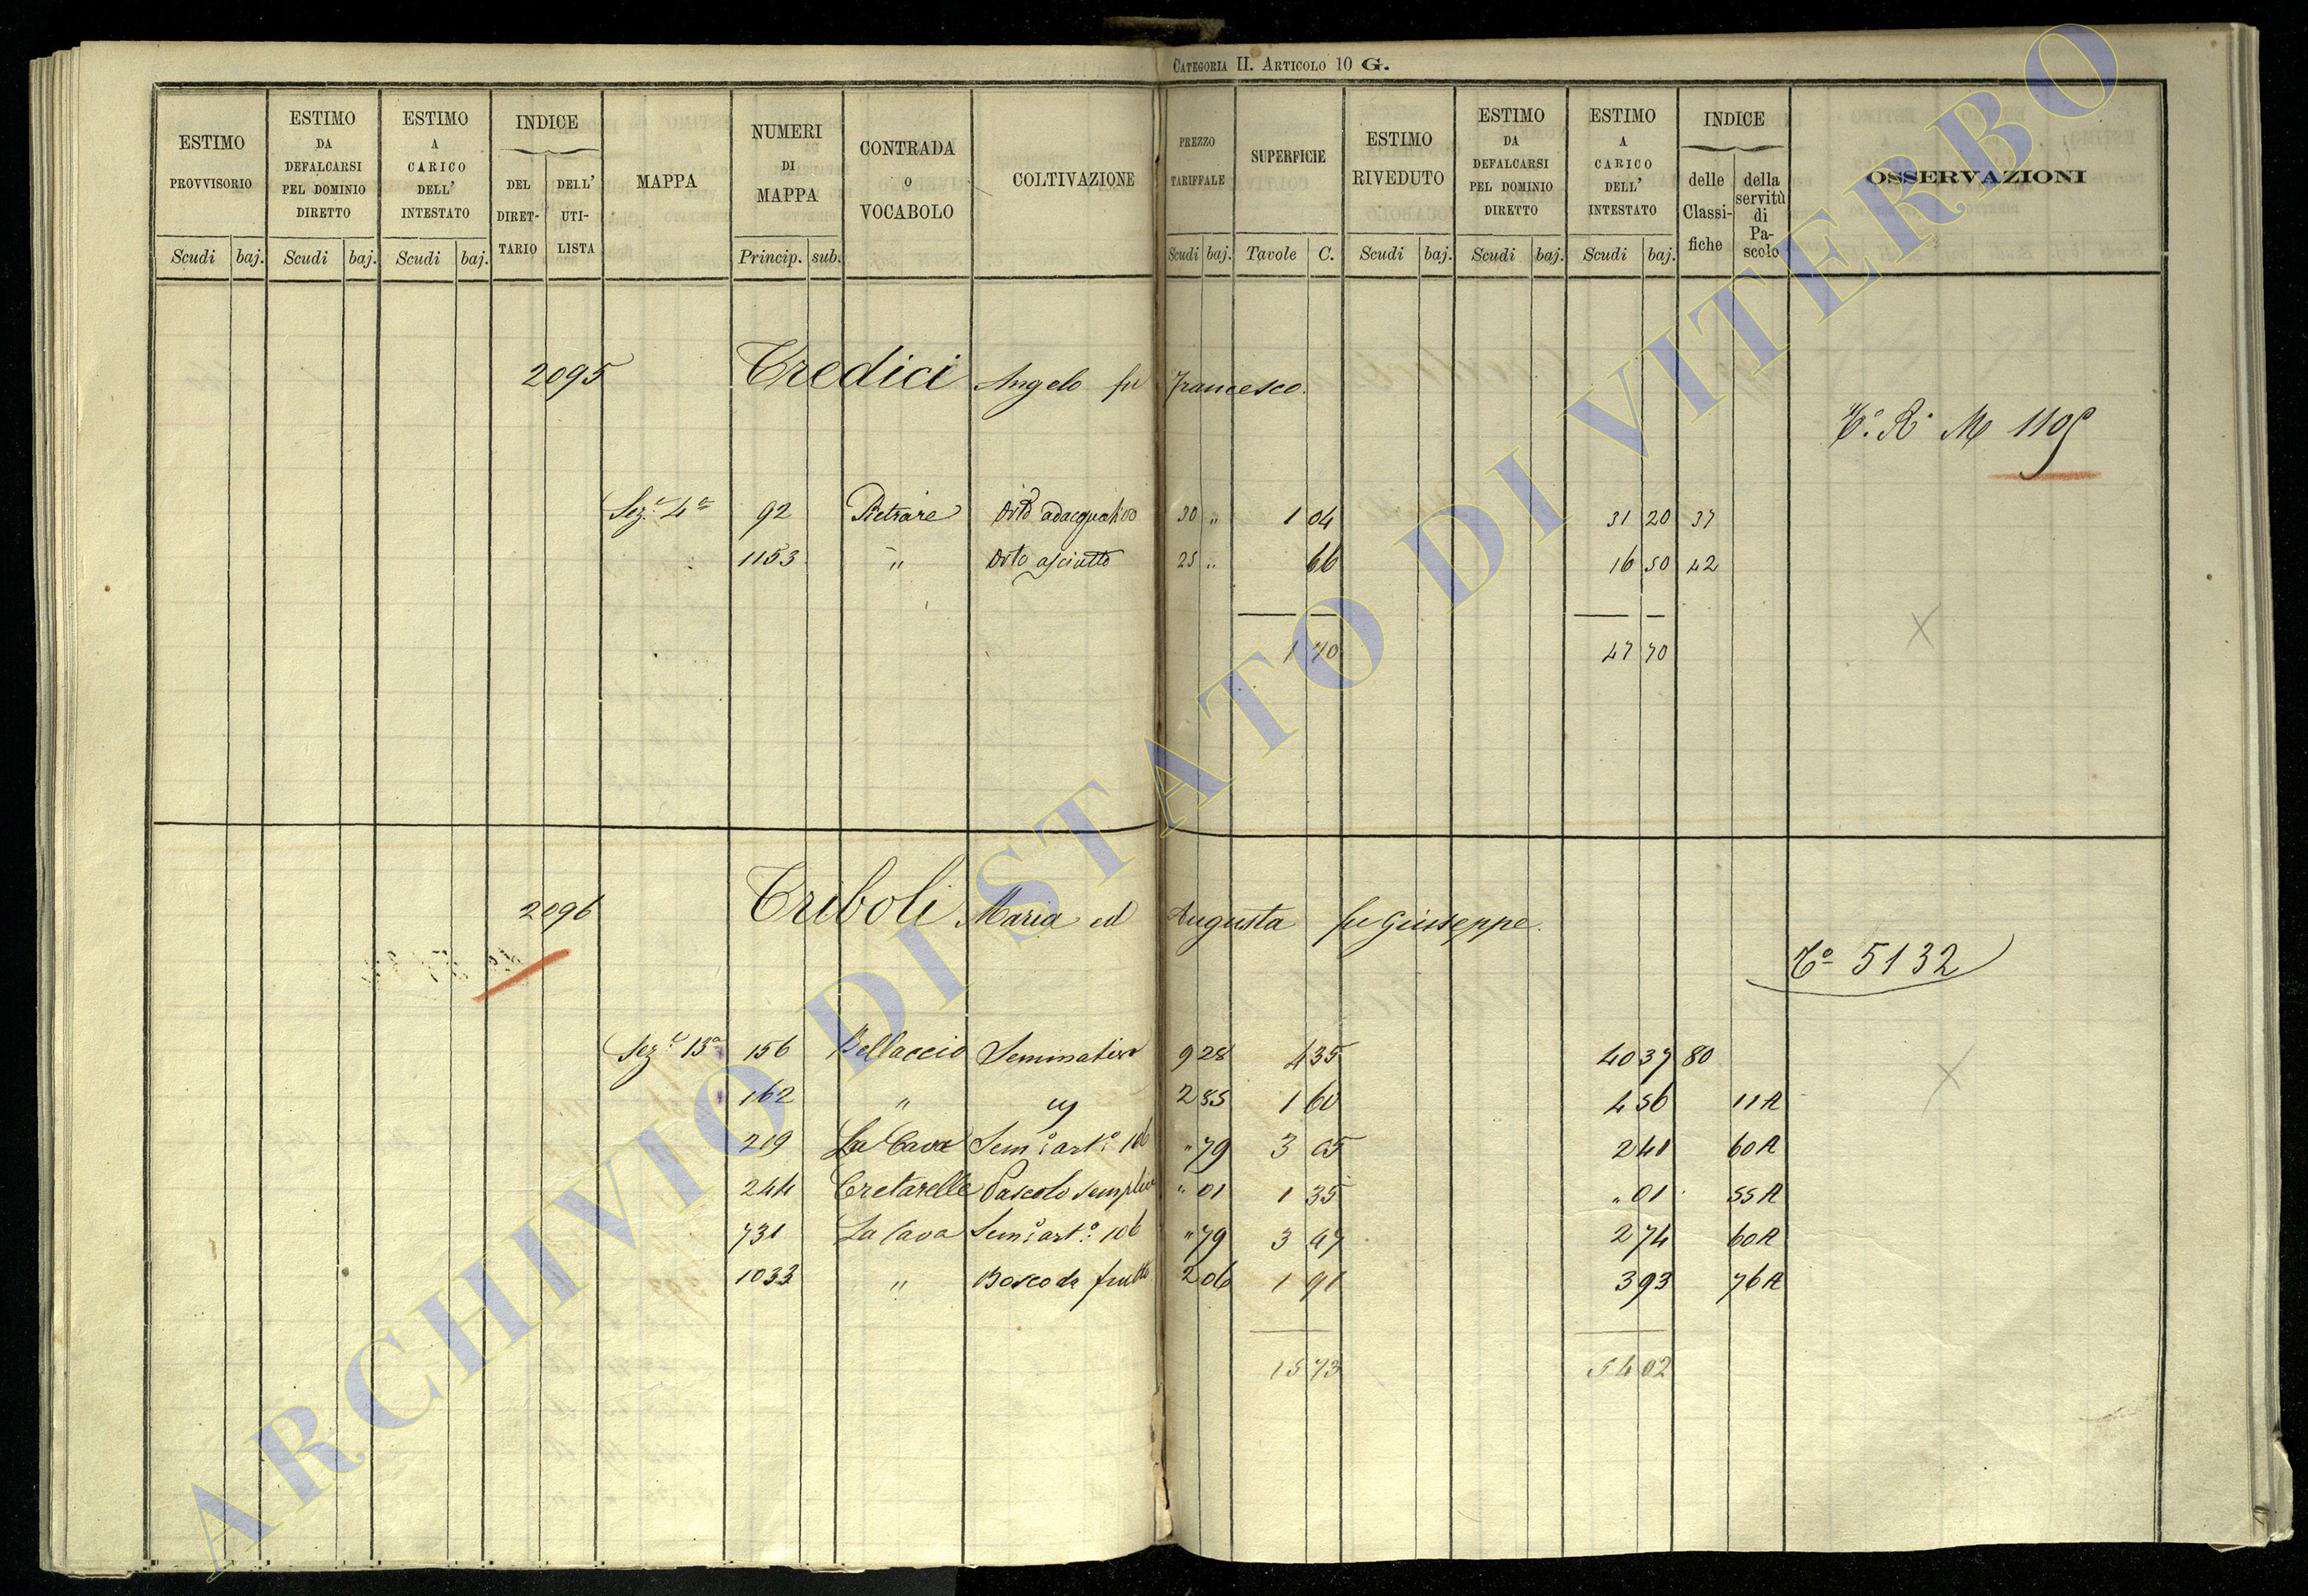 CATEGORIA II. ARTICOLO 10 G.
ESTIMO PROVVISORIO
ESTIMO DA DEFALCARSI PEL DOMINIO DIRETTO
ESTIMO A CARICO DELL' INTESTATO
INDICE
DEL DIRET-TARIO
DELL' UTI-LISTA
MAPPA
NUMERI DI MAPPA
CONTRADA O VOCABOLO
COLTIVAZIONE
PREZZO TARIFFALE
SUPERFICIE
ESTIMO RIVEDUTO
ESTIMO DA DEFALCARSI PEL DOMINIO DIRETTO
ESTIMO A CARICO DELL' INTESTATO
INDICE
delle Classi-fiche
della servitù di Pa-scolo
OSSERVAZIONI
Scudi baj. Scudi baj. Scudi baj. Princip. sub. Scudi baj. Tavole C. Scudi baj. Scudi baj. Scudi baj.
2095 Tredici Angelo fu Francesco.
T.° R.° M 1105
Sez.e 4a 92 Pietrare Orto adacquativo 30 " 1 04 31 20 37
1153 " Orto asciutto 25 " 66 16 50 42
1 70 47 70
2096 Triboli Maria ed Augusta fu Giuseppe.
T.° 5132
Sez.e 13a 156 Bellaccio Seminativo 9 28 4 35 40 37 80
162 " " 2 85 1 60 4 56 11A
219 La Cava Sem.° art.° 106 " 79 3 05 2 41 60A
244 Cretarelle Pascolo semplice " 01 1 35 " 01 55A
731 La Cava Sem.° art.° 106 " 79 3 47 2 74 60A
1033 " Bosco da frutto 2 06 1 91 3 93 76A
15 73 54 02
ARCHIVIO DI STATO DI VITERBO